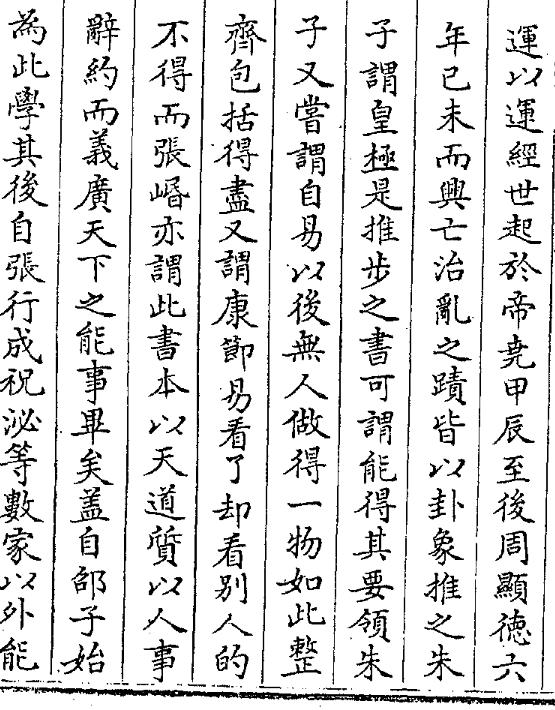 運以運經世起於帝堯甲辰至後周顯徳六
年己未而興亡治亂之蹟皆以卦象推之朱
子謂皇極是推步之書可謂能得其要領朱
子又嘗謂自易以後無人做得一物如此整
齊包括得盡又謂康節易看了却看别人的
不得而張㟭亦謂此書本以天道質以人事
辭約而義廣天下之能事畢矣蓋自邵子始
為此學其後自張行成祝泌等數家以外能